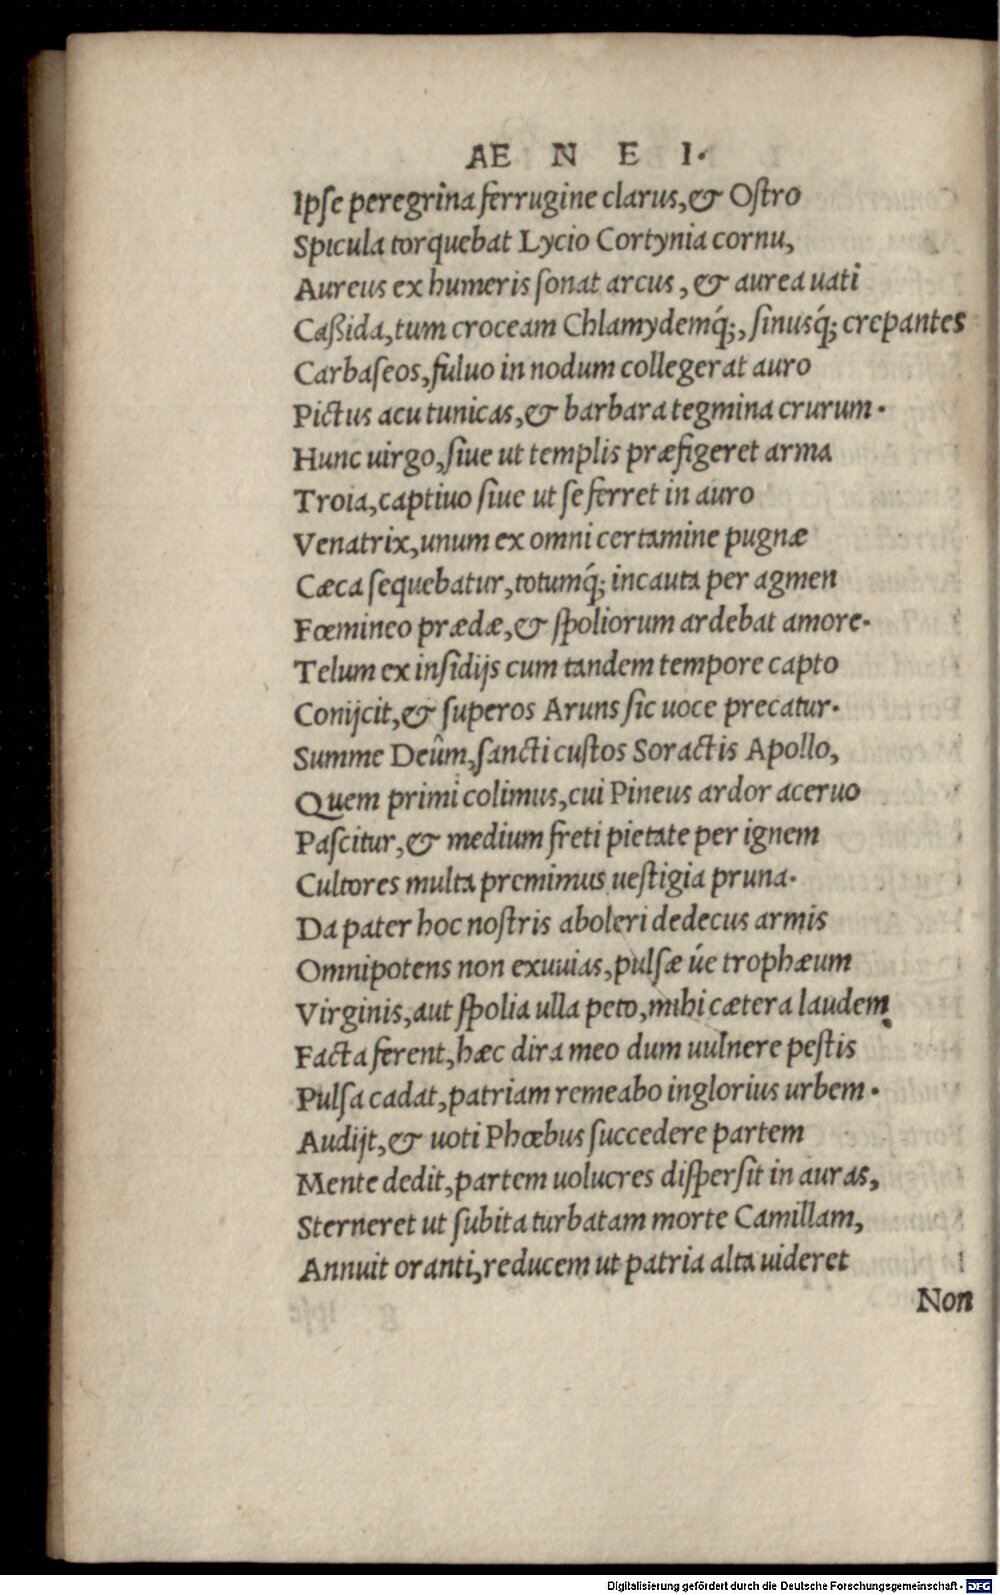 AE N E I.
Ipſe peregrina ferrugine clarus,& Oſtro
Spicula torquebat Lycio Cortynia cornu,
Aureus ex humeris ſonat arcus, & aurea uati
Caßida,tum croceam Chlamydemq́;, ſinusq́; crepantes
Carbaſeos,fuluo in nodum collegerat auro
Pictus acu tunicas,& barbara tegmina crurum.
Hunc uirgo,ſiue ut templis præfigeret arma
Troia,captiuo ſiue ut ſe ferret in auro
Venatrix,unum ex omni certamine pugnæ
Cæca ſequebatur,totumq́; incauta per agmen
Fœmineo prædæ,& ſpoliorum ardebat amore.
Telum ex inſidijs cum tandem tempore capto
Conijcit,& ſuperos Aruns ſic uoce precatur.
Summe Deûm,ſancti cuſtos Soractis Apollo,
Quem primi colimus,cui Pineus ardor aceruo
Paſcitur,& medium freti pietate per ignem
Cultores multa premimus ueſtigia pruna.
Da pater hoc noſtris aboleri dedecus armis
Omnipotens non exuuias,pulſæ úe trophæum
Virginis,aut ſpolia ulla peto,mihi cætera laudem
Facta ferent,hæc dira meo dum uulnere peſtis
Pulſa cadat,patriam remeabo inglorius urbem.
Audijt,& uoti Phœbus ſuccedere partem
Mente dedit,partem uolucres diſperſit in auras,
Sterneret ut ſubita turbatam morte Camillam,
Annuit oranti,reducem ut patria alta uideret
Non
Digitalisierung gefördert durch die Deutsche Forschungsgemeinschaft - DFG